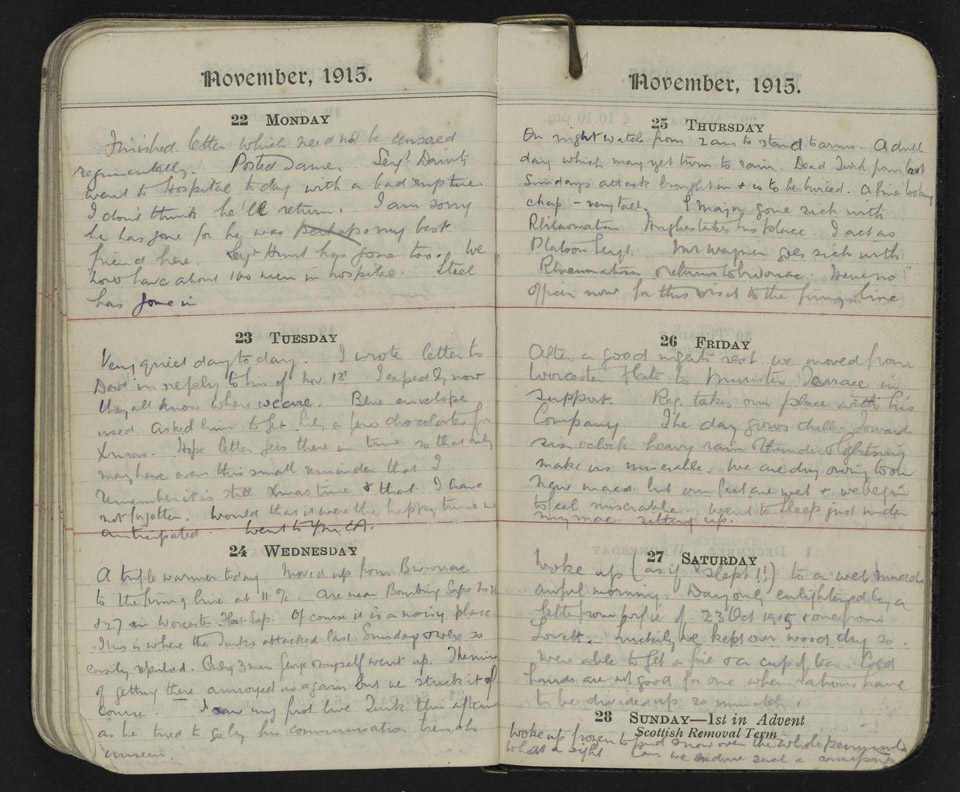 November, 1915.
22 MONDAY
Finished letter which need not be censored
regimentally. Posted same. Sergt
went to Hospital to day with a bad rupture
I don't think he'll return. I am sorry
he has gone for he was perhaps my best
friend here. Sergt Hunt has gone too. We
now have about 100 men in hospital. Steel
has gone in
23 TUESDAY
Very quiet day to day. I wrote letter to
Dad in reply to his of Nov 1st. I expect by now
they all know where we are. Blue envelope
used. Asked him to get a few chocolates for
Xmas. Hope letter gets there in time so that they
may have even this small reminder that I
remember it is still Xmas time & that I have
not forgotten. Would that it were the happy time we
anticipated. Went to Y.M.C.A.
24 WEDNESDAY
A trifle warmer today. Moved up from Bivouac
to the firing line at 11 Are near Bombing Saps No 26
& 27 in Worcester Flat Sap. Of course it is a noisy place.
This is where the Turks attacked last Sunday & were so
easily repulsed. Only 3 men & myself went up. The
of getting there annoyed us again but we struck it of
course. I saw my first live Turk this aftern
as he tried to go by his communication trench
unseen.
November, 1915.
25 THURSDAY
On night watch from 2am to stand to arms. A dull
day which may yet turn to rain. Dead Turk from last
Sundays attack brought in & is to be buried. A fine looking
chap - very tall. S major gone sick with
Rheumatism. Hughes takes his place. I act as
Platoon Sergt. Mr Wagner goes sick with
Rheumatism & returns to bivouac. Have no
officer now for this visit to the firing line
26 FRIDAY
After a good nights rest we moved from
Worcester Flats to Terrace in
support. Reg. takes our place with his
Company. The day grows dull. Towards
six o'clock heavy rain thunder & lightning
make us miserable. We are dry owing to our
new macs but our feet are wet & we begin
to feel miserable. Went to sleep just under
my mac sitting up.
27 SATURDAY
Woke up (as if I slept!!) to a wet muddy
awful morning. Day only enlightened by a
letter from of 23 Oct 1915 & one from
Lovett. Luckily we kept our wood dry so
were able to get a fire & a cup of tea. Cold
hands are not good for one when rations have
to be divided up so minutely.
28 SUNDAY—1st in Advent
Scottish Removal Term
Woke up frozen to find snow over the whole peninsula
what a sight. Can we endure such a